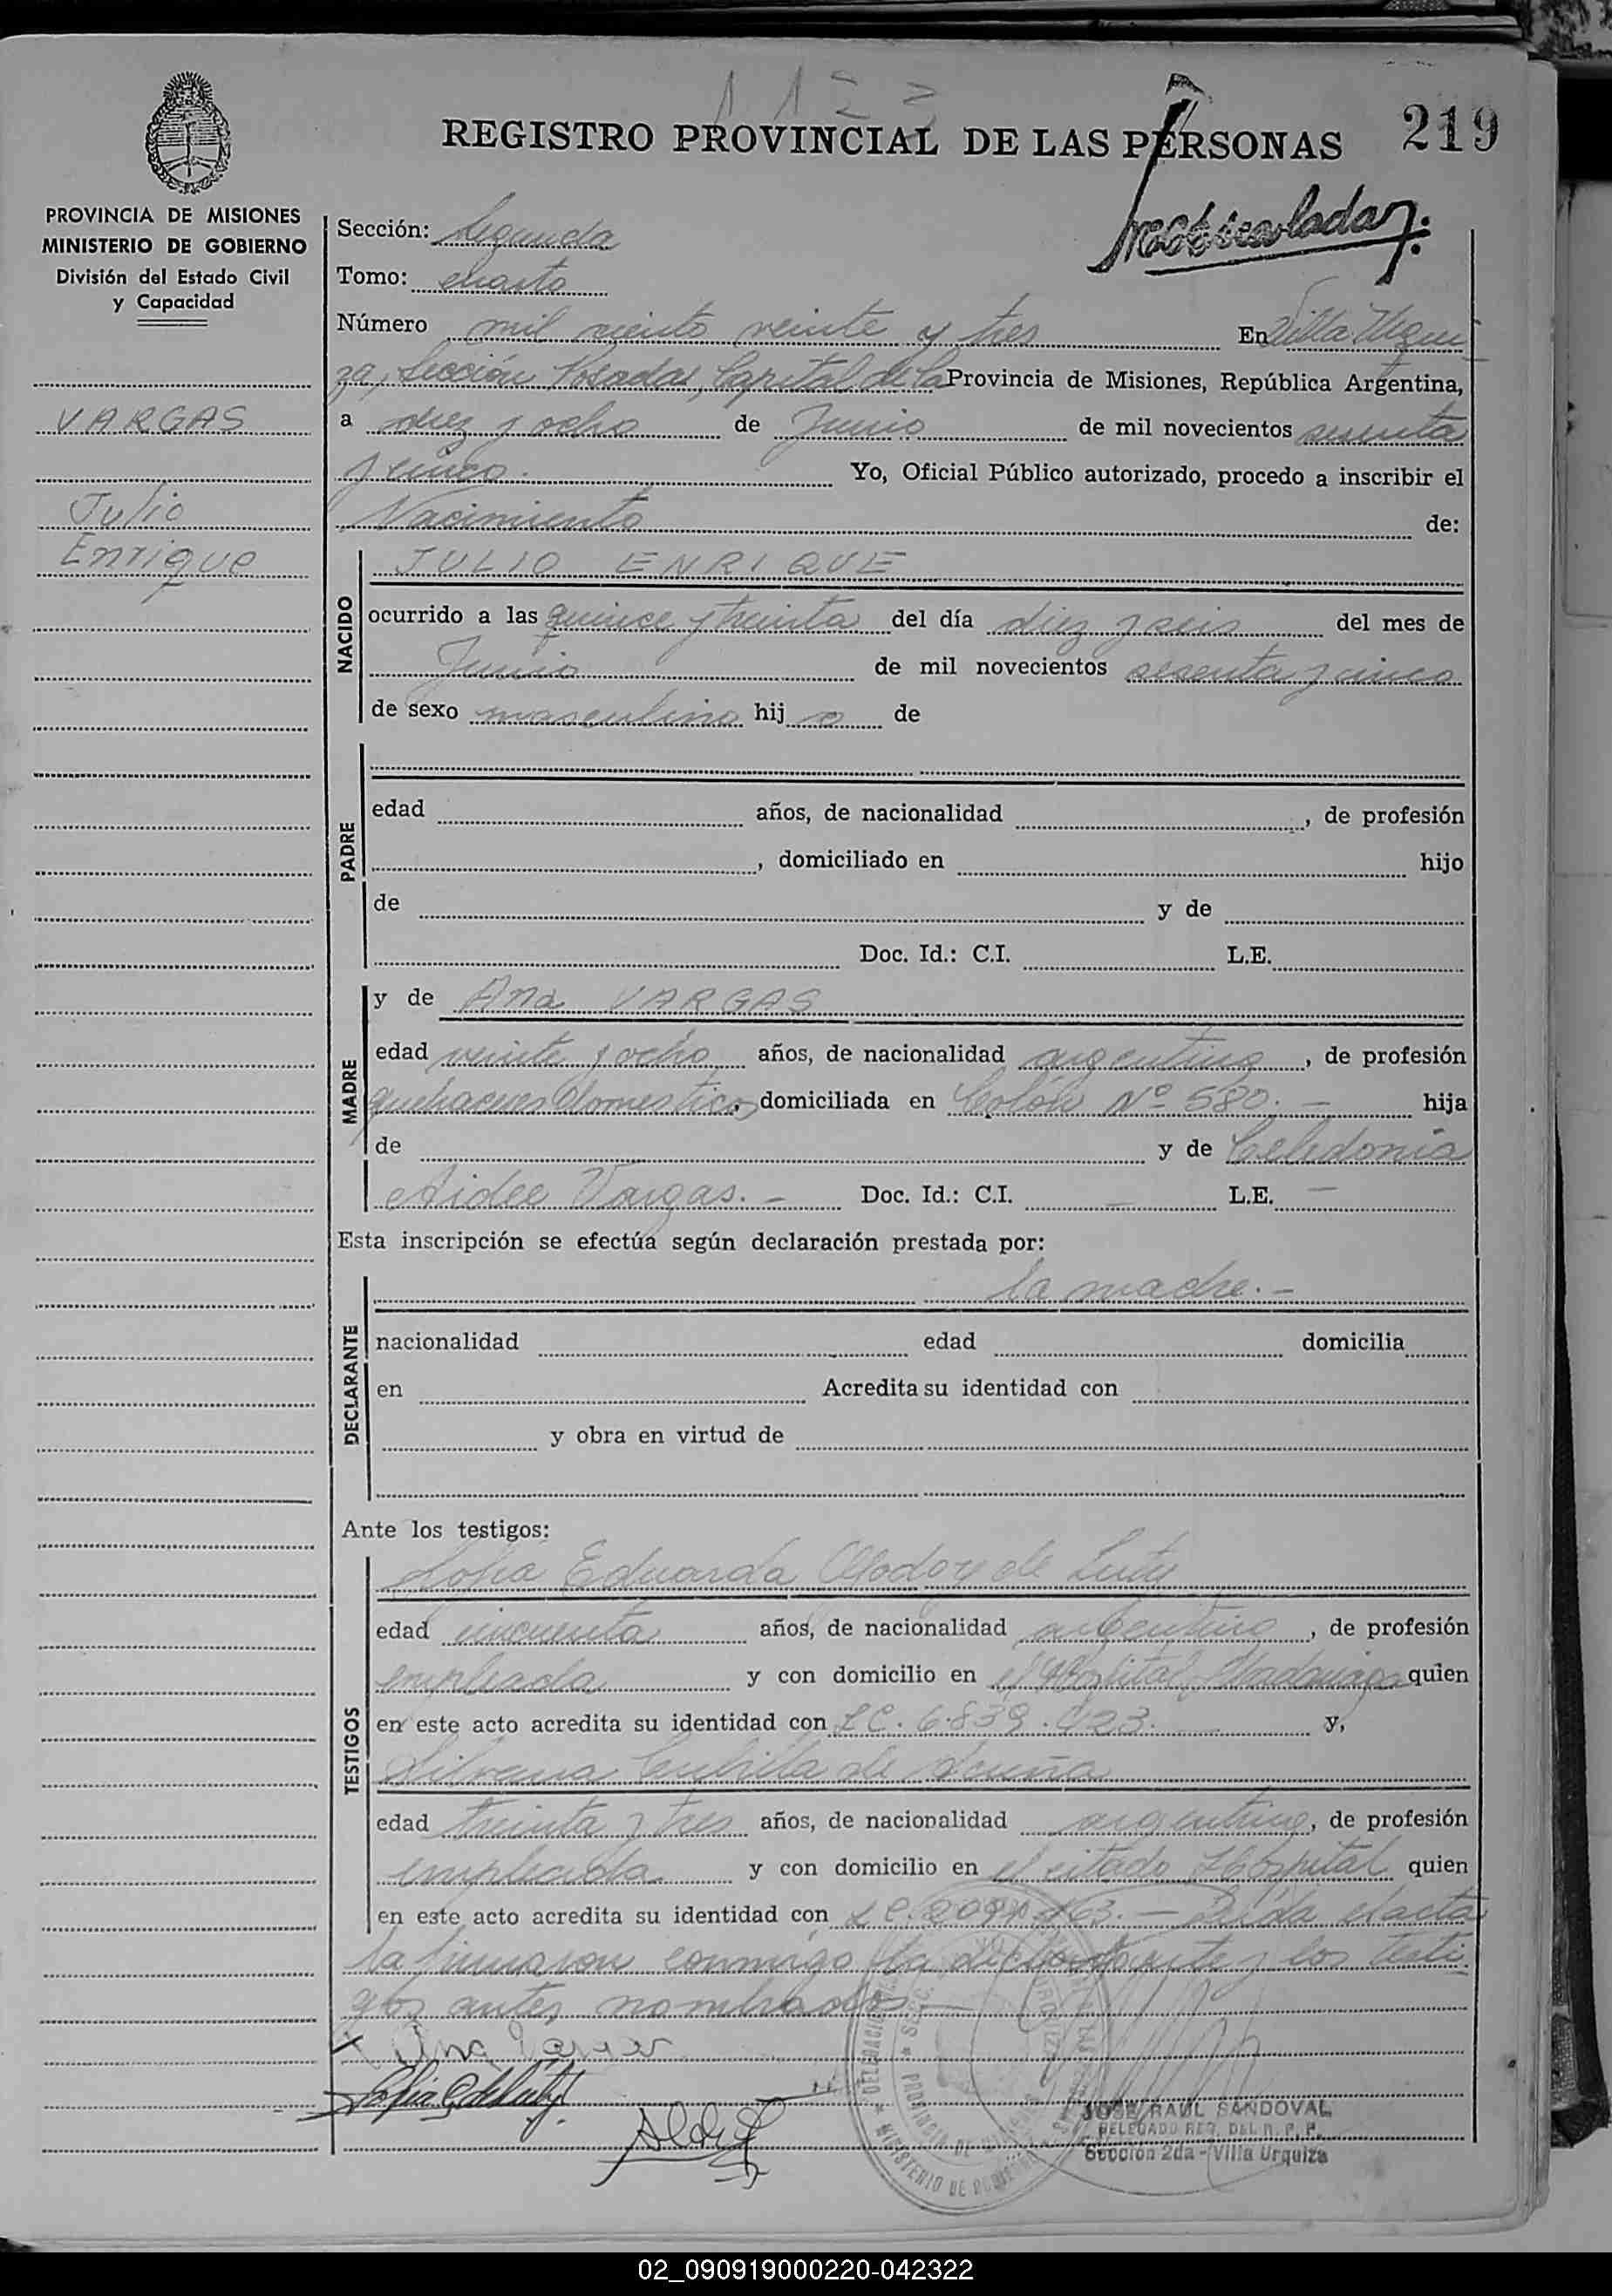 1123
REGISTRO PROVINCIAL DE LAS PERSONAS 219
PROVINCIA DE MISIONES
MINISTERIO DE GOBIERNO
División del Estado Civil
y Capacidad
VARGAS
Julio
Enrique
Sección: Segunda
Tomo: cuarto
Número mil ciento veinte y tres En Villa Urqui
za, Sección Posadas, Capital de la Provincia de Misiones, República Argentina,
a diez y ocho de Junio de mil novecientos sesenta
y cinco. Yo, Oficial Público autorizado, procedo a inscribir el
Nacimiento de:
NACIDO
JULIO ENRIQUE
ocurrido a las quince y treinta del día diez y seis del mes de
Junio de mil novecientos sesenta y cinco
de sexo masculino hij o de
PADRE
edad años, de nacionalidad , de profesión
, domiciliado en hijo
de y de
Doc. Id.: C.I. L.E.
MADRE
y de Ana VARGAS
edad veinte y ocho años, de nacionalidad argentina, de profesión
quehaceres domesticos domiciliada en Colón Nº 580. - hija
de y de Celedonia
Aidee Vargas. - Doc. Id.: C.I. - L.E. -
Esta inscripción se efectúa según declaración prestada por:
DECLARANTE
la madre. -
nacionalidad edad domicilia
en Acredita su identidad con
y obra en virtud de
Ante los testigos:
TESTIGOS
Sofia Eduarda Godoy de
edad cincuenta años, de nacionalidad argentina, de profesión
empleada y con domicilio en el Hospital Madariaga quien
en este acto acredita su identidad con LC. 6.839.423. y,
Silveria de Acuña
edad treinta y tres años, de nacionalidad argentina, de profesión
empleada y con domicilio en el citado Hospital quien
en este acto acredita su identidad con L C. - Leída el acta
la firmaron conmigo la declarante y los testi
gos antes nombrados. -
x Ana Vargas
JOSE RAUL SANDOVAL
DELEGADO REG. DEL R. P. P.
Sección 2da - Villa Urquiza
02_090919000220-042322